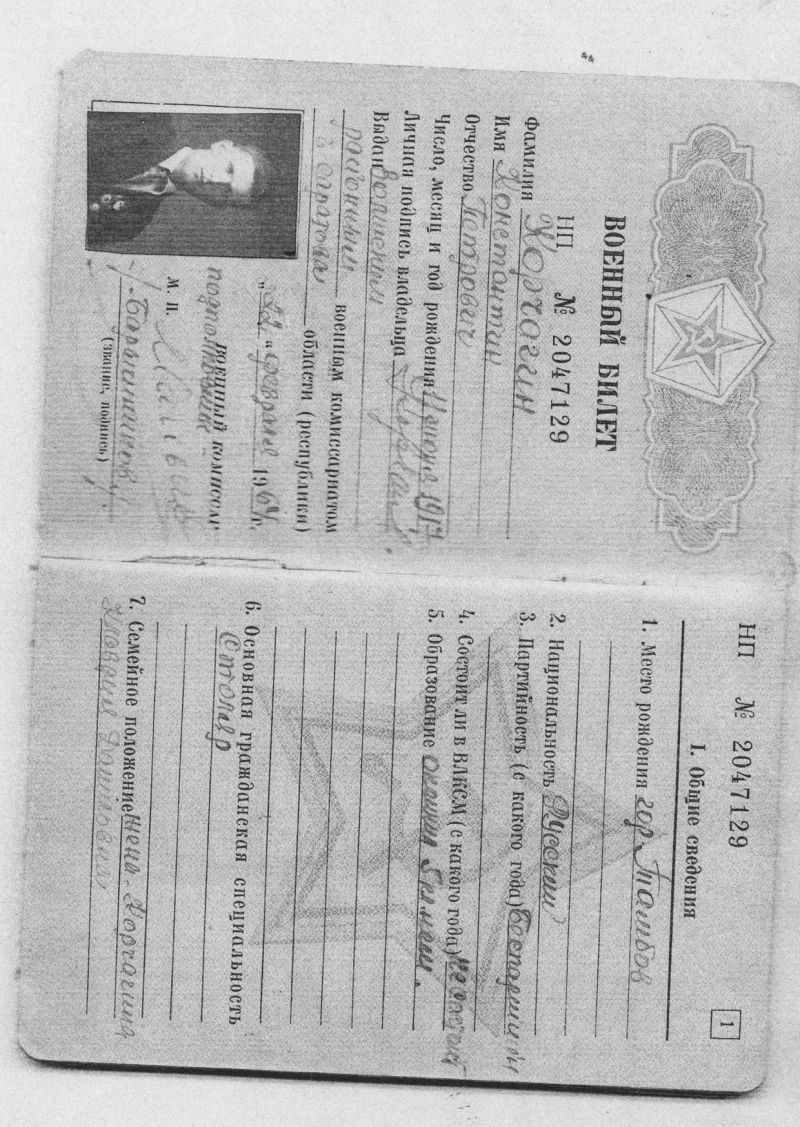 ВОЕННЫЙ БИЛЕТ
НП № 2047129
Фамилия Корчагин
Имя Константин
Отчество Петрович
Число, месяц и год рождения июня 1917
Личная подпись владельца
Выдан Волжским
районным военным комиссариатом
г. Саратова области (республики)
„22“ февраля 1964 г.
военный комиссар
подполковник
М. П.
/Барышников/
(звание, подпись)
НП № 2047129
1
I. Общие сведения
1. Место рождения гор. Тамбов
2. Национальность Русский
3. Партийность (с какого года) Беспартийный
4. Состоит ли в ВЛКСМ (с какого года) не состоит
5. Образование окончил
6. Основная гражданская специальность
Столяр
7. Семейное положение Жена - Корчагина